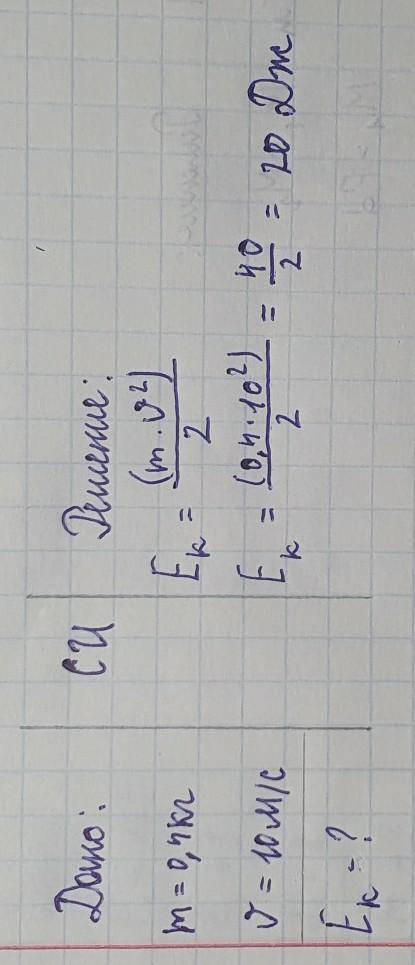 Дано:
m = 0,4кг
v = 10м/с
Eк - ?
СИ
Решение:
Eк = (m · v²) / 2
Eк = (0,4 · 10²) / 2 = 40 / 2 = 20 Дж